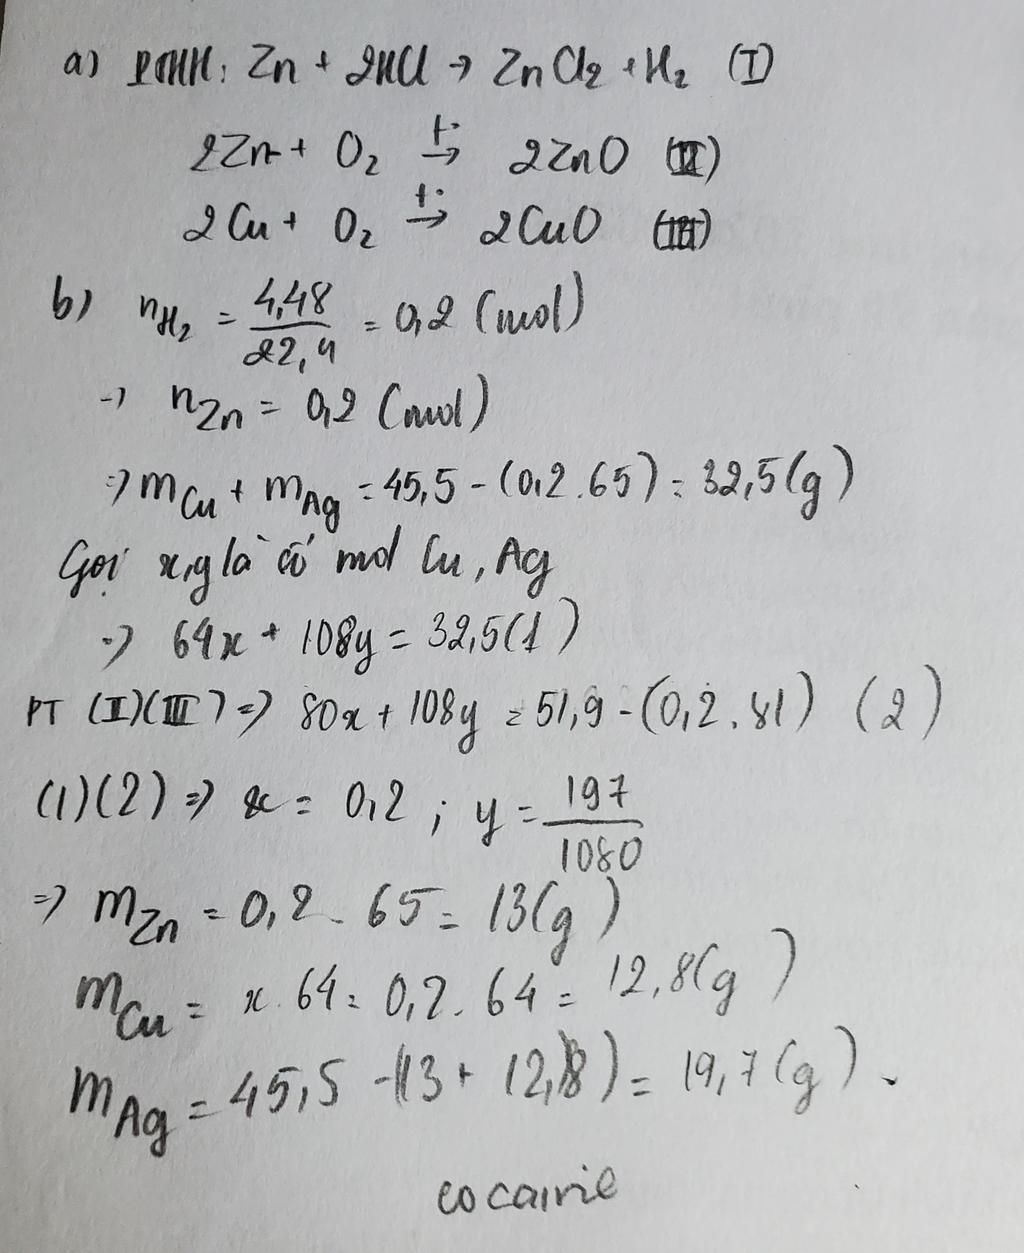 a) PTHH: Zn + 2HCl → ZnCl₂ + H₂ (I)
2Zn + O₂ t°→ 2ZnO (II)
2Cu + O₂ t°→ 2CuO (III)
b) nH₂ = 4,48/22,4 = 0,2 (mol)
→ nZn = 0,2 (mol)
=> mCu + mAg = 45,5 - (0,2.65) = 32,5(g)
Gọi x,y là số mol Cu, Ag
=> 64x + 108y = 32,5(1)
PT (I)(III) => 80x + 108y = 51,9 - (0,2.81) (2)
(1)(2) => x = 0,2 ; y = 197/1080
=> mZn = 0,2 . 65 = 13(g)
mCu = x.64 = 0,2.64 = 12,8(g)
mAg = 45,5 - (13 + 12,8) = 19,7(g).
cocaine